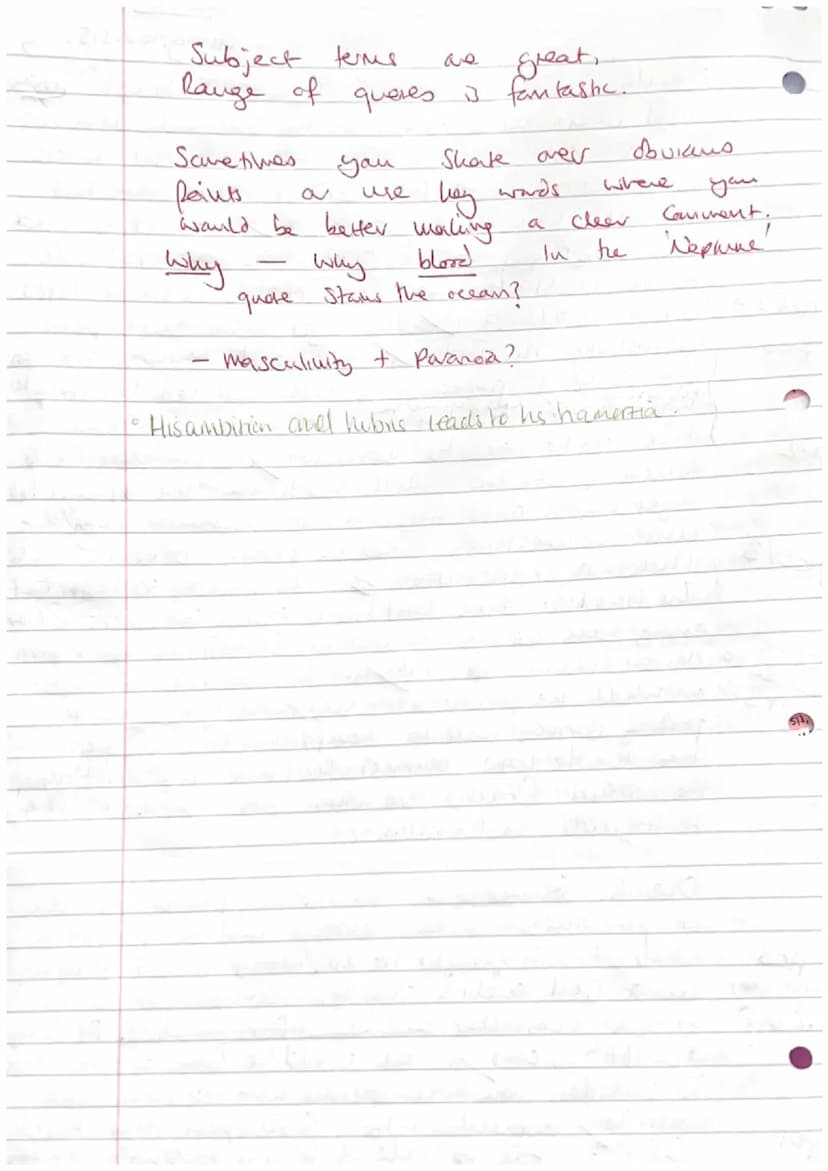 Subject terms are great,
Range of quotes is fantastic.
Sometimes you skate over obvious
points or use key words where you
would be better making a clear comment.
Why – Why blood in the 'Neptune'
quote stains the ocean?
– Masculinity + Paranoa?
• His ambition and hubris leads to his hamertia.